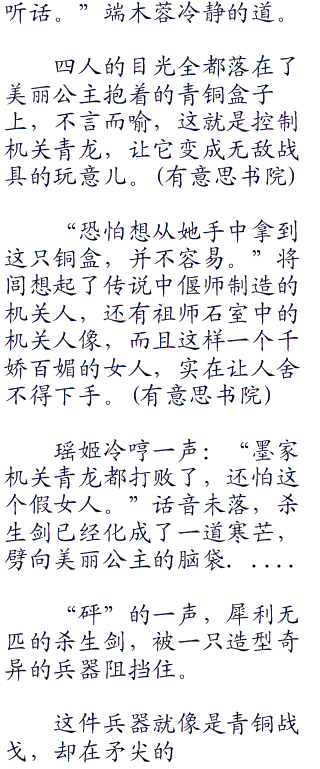 听话。”端木蓉冷静的道。
四人的目光全都落在了
美丽公主抱着的青铜盒子
上，不言而喻，这就是控制
机关青龙，让它变成无敌战
具的玩意儿。(有意思书院)
“恐怕想从她手中拿到
这只铜盒，并不容易。”将
闾想起了传说中偃师制造的
机关人，还有祖师石室中的
机关人像，而且这样一个千
娇百媚的女人，实在让人舍
不得下手。(有意思书院)
瑶姬冷哼一声：“墨家
机关青龙都打败了，还怕这
个假女人。”话音未落，杀
生剑已经化成了一道寒芒，
劈向美丽公主的脑袋.....
“砰”的一声，犀利无
匹的杀生剑，被一只造型奇
异的兵器阻挡住。
这件兵器就像是青铜战
戈，却在矛尖的